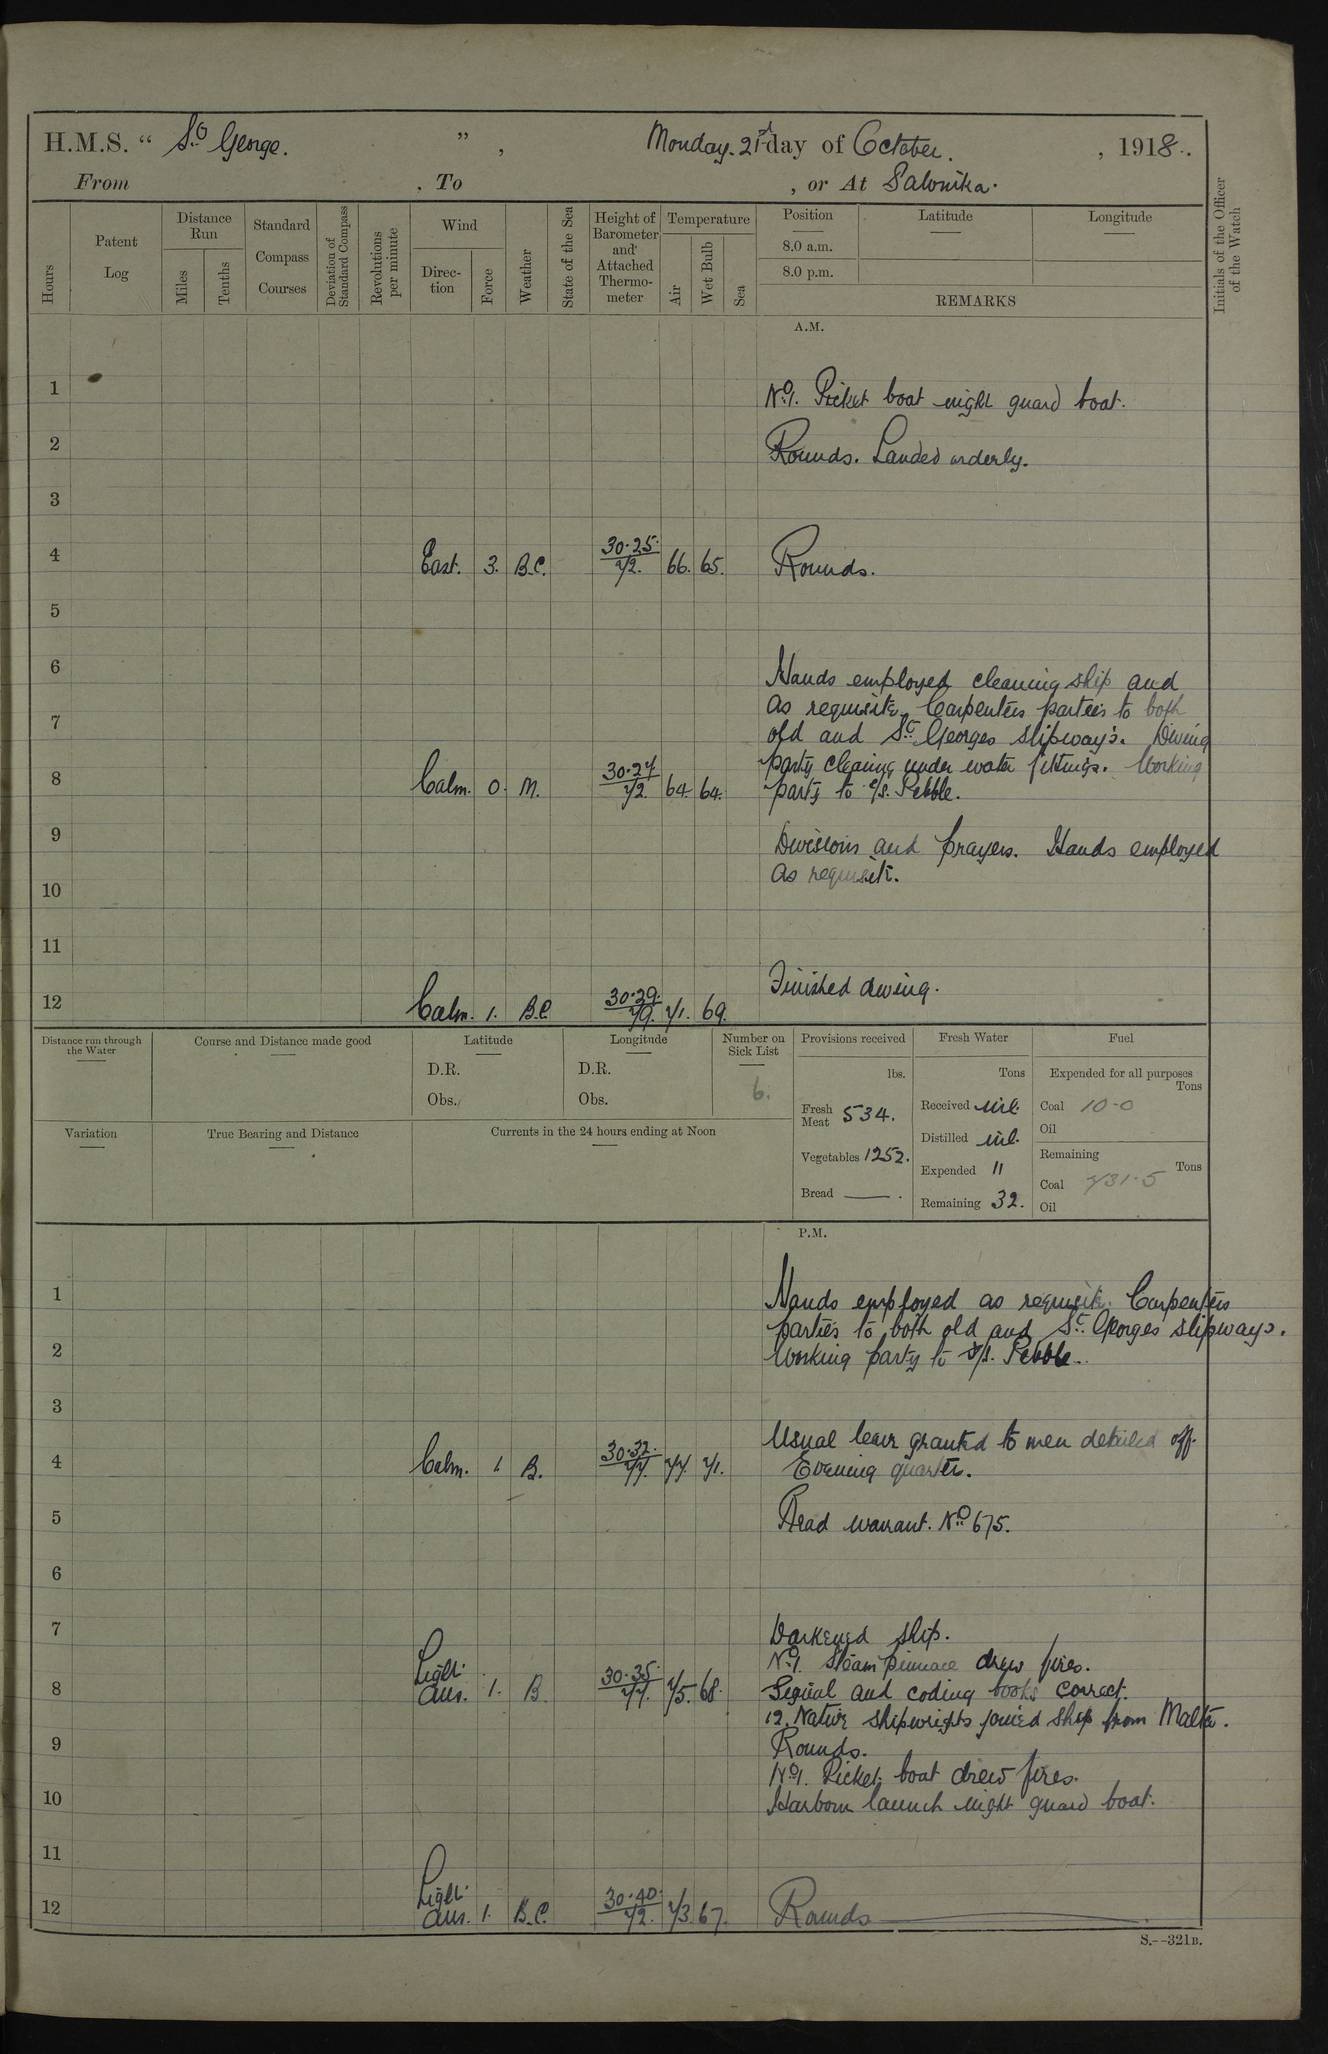 H.M.S. " St George. ", Monday. 21st day of October. , 1918.
From , To , or At Salonika.
Hours
Patent Log
Distance Run
Miles
Tenths
Standard Compass Courses
Deviation of Standard Compass
Revolutions per minute
Wind
Direction
Force
Weather
State of the Sea
Height of Barometer and Attached Thermometer
Temperature
Air
Wet Bulb
Sea
Position
8.0 a.m.
8.0 p.m.
Latitude
Longitude
REMARKS
Initials of the Officer of the Watch
A.M.
1
No 1. Picket boat night guard boat.
2
Rounds. Landed orderly.
3
4 East. 3. B.C. 30.25. 72. 66. 65. Rounds.
5
6
Hands employed cleaning ship and
7
as requisite. Carpenters parties to both
old and St Georges slipways. Diving
party clearing under water fittings. Working
8 Calm. 0. M. 30.27 72. 64. 64. party to S/S. Pebble.
9
Divisions and prayers. Hands employed
10
as requisite.
11
Finished diving.
12 Calm. 1. B.C. 30.29. 79. 71. 69.
Distance run through the Water
Course and Distance made good
Latitude
D.R.
Obs.
Longitude
D.R.
Obs.
Number on Sick List
6.
Provisions received
lbs.
Fresh Meat 534.
Vegetables 1252.
Bread —— .
Fresh Water
Tons
Received nil.
Distilled nil.
Expended 11
Remaining 32.
Fuel
Expended for all purposes
Tons
Coal 10-0
Oil
Remaining
Tons
Coal 731.5
Oil
Variation
True Bearing and Distance
Currents in the 24 hours ending at Noon
P.M.
1
Hands employed as requisite. Carpenters
parties to both old and St Georges slipways.
2
Working party to S/S. Pebble.
3
Usual leave granted to men detailed off.
4 Calm. 1. B. 30.32. 77. 77. 71. Evening quarters.
5
Read warrant. No 675.
6
7
Darkened ship.
No 1. Steam pinnace drew fires.
8 Light airs. 1. B. 30.35. 77. 75. 68. Signal and coding books correct.
12. Native shipwrights joined ship from Malta.
9
Rounds.
No 1. Picket boat drew fires.
10
Harbour launch night guard boat.
11
12 Light airs. 1. B.C. 30.40. 72. 73. 67. Rounds
S.--321B.